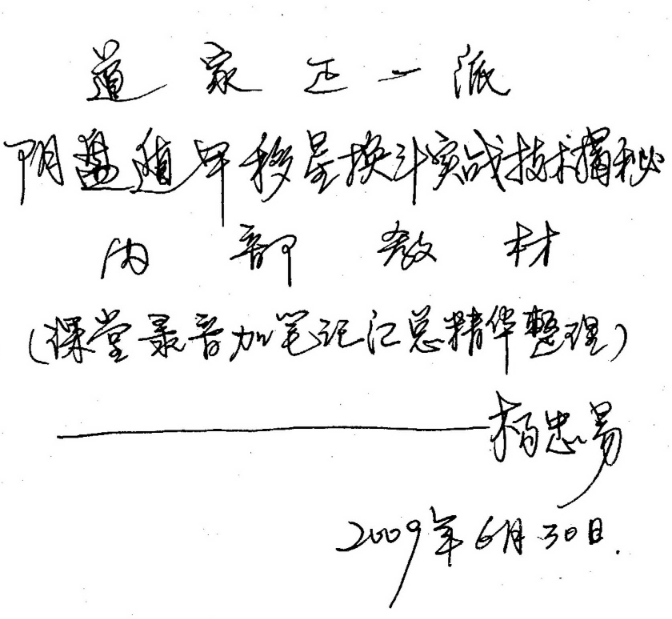 道家正一派
阴盘遁甲移星换斗实战技术揭秘
内部教材
(课堂录音加笔记汇总精华整理)
——杨忠易
2009年6月30日.